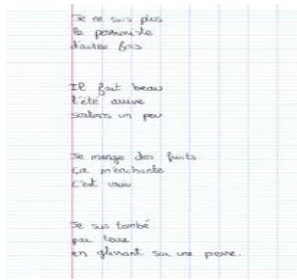 Je ne suis plus
la personne
d'autre fois
Il fait beau
l'été arrive
sortons un peu
Je mange des fruits
ça m'enchante
c'est vrai
Je suis tombé
par terre
en glissant sur une pierre.